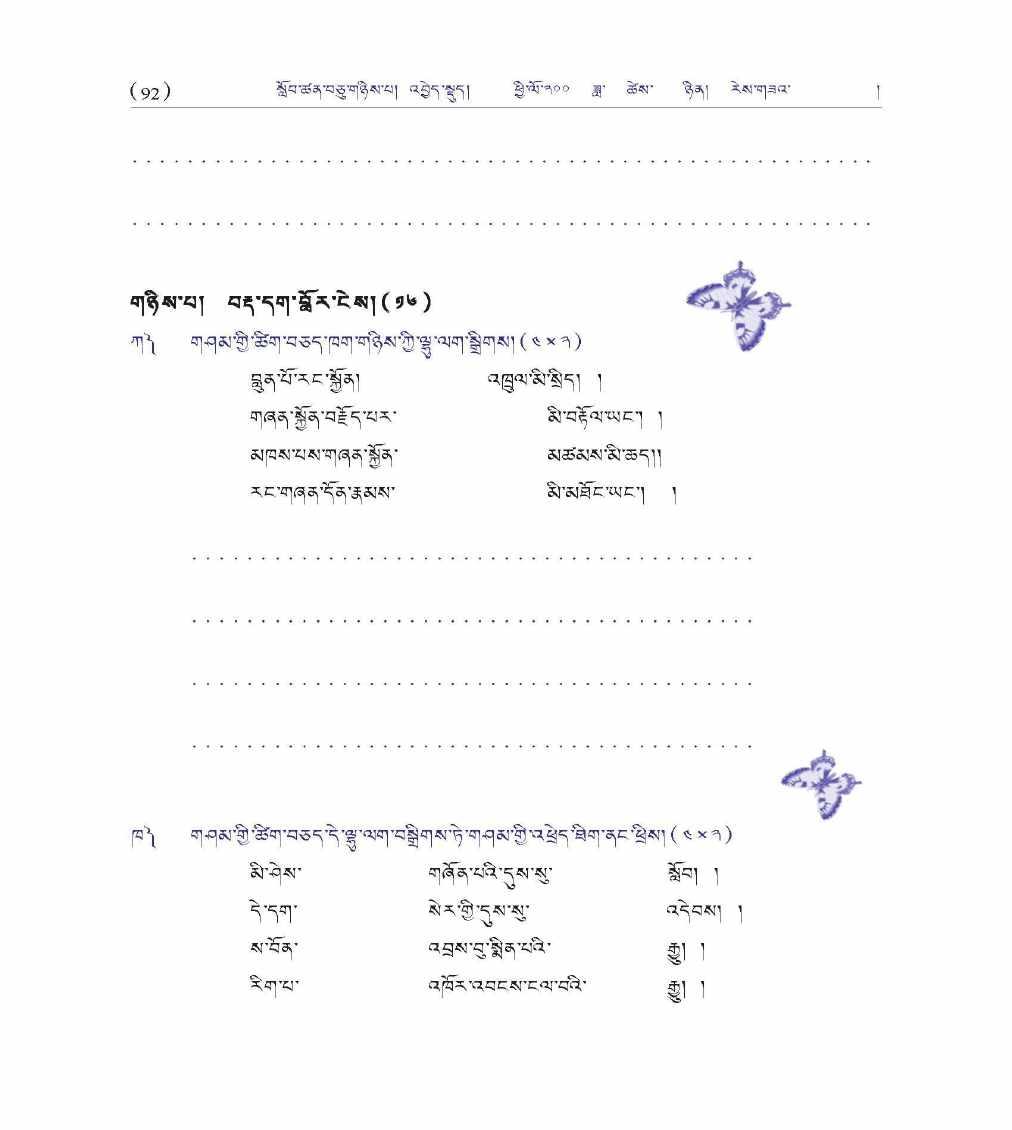 (92) སློབ་ཚན་བཅུ་གཉིས་པ། འབྱེད་སྡུད། ཕྱི་ལོ་༢༠༠ ཟླ་ ཚེས་ ཉིན། རེས་གཟའ་ །
གཉིས་པ། བརྡ་དག་བློར་ངེས། (༡༦)
ཀ༽ གཤམ་གྱི་ཚིག་བཅད་ཁག་གཉིས་ཀྱི་ལྷུ་ལག་སྒྲིགས། (༤×༢)
བླུན་པོ་རང་སྐྱོན། འཁྲུལ་མི་སྲིད། །
གཞན་སྐྱོན་བརྗོད་པར་ མི་བརྟོལ་ཡང་། །
མཁས་པས་གཞན་སྐྱོན་ མཚམས་མི་ཆད། །
རང་གཞན་དོན་རྣམས་ མི་མཐོང་ཡང་། །
ཁ༽ གཤམ་གྱི་ཚིག་བཅད་དེ་ལྷུ་ལག་བསྒྲིགས་ཏེ་གཤམ་གྱི་འཕྲེད་ཐིག་ནང་ཕྲིས། (༤×༢)
མི་ཤེས་ གཞོན་པའི་དུས་སུ་ སློབ། །
དེ་དག་ སེར་གྱི་དུས་སུ་ འདེབས། །
ས་བོན་ འབྲས་བུ་སྨིན་པའི་ རྒྱུ། །
རིག་པ་ འཁོར་འབངས་ངལ་བའི་ རྒྱུ། །